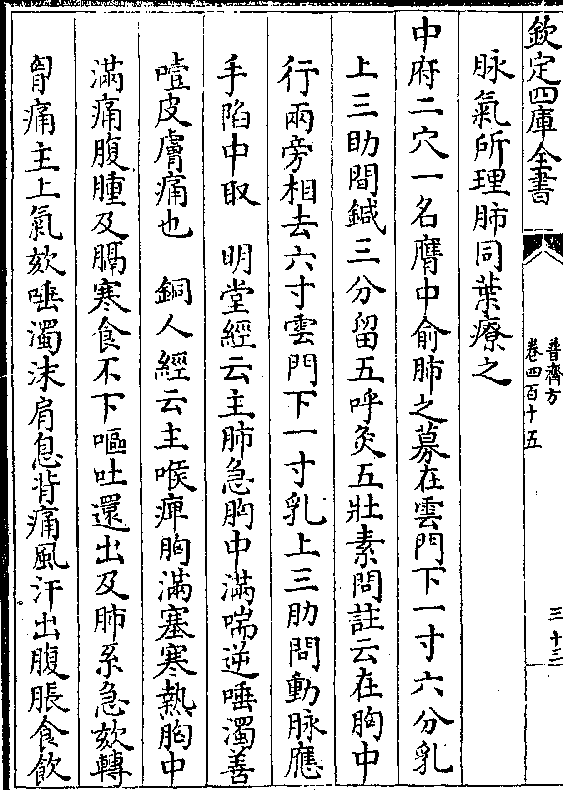 欽定四庫全書
普濟方
卷四百十五
三十三
脉氣所理肺同葉療之
中府二穴一名膺中俞肺之募在雲門下一寸六分乳
上三肋間鍼三分留五呼灸五壯素問註云在胸中
行兩旁相去六寸雲門下一寸乳上三肋間動脉應
手陷中取　明堂經云主肺急胸中滿喘逆唾濁善
噎皮膚痛也　銅人經云主喉痺胸滿塞寒熱胸中
滿痛腹腫及膈寒食不下嘔吐還出及肺系急欬轉
胷痛主上氣欬唾濁沫肩息背痛風汗出腹脹食飲